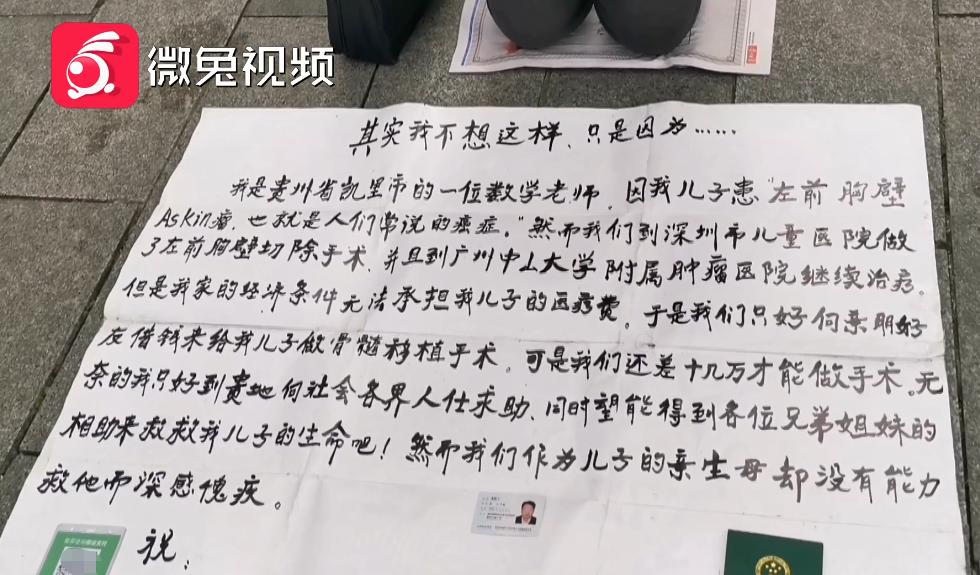 微兔视频
其实我不想这样、只是因为……
我是贵州省凯里市的一位数学老师，因我儿子患"左前胸壁
Askin瘤，也就是人们常说的癌症。"然而我们到深圳市儿童医院做
了左前胸壁切除手术、并且到广州中山大学附属肿瘤医院继续治疗。
但是我家的经济条件无法承担我儿子的医疗费。于是我们只好向亲朋好
友借钱来给我儿子做骨髓移植手术。可是我们还差十几万才能做手术。无
奈的我只好到贵地向社会各界人仕求助、同时望能得到各位兄弟姐妹的
相助来救救我儿子的生命吧！然而我们作为儿子的亲生母却没有能力
救他而深感愧疚。
祝：